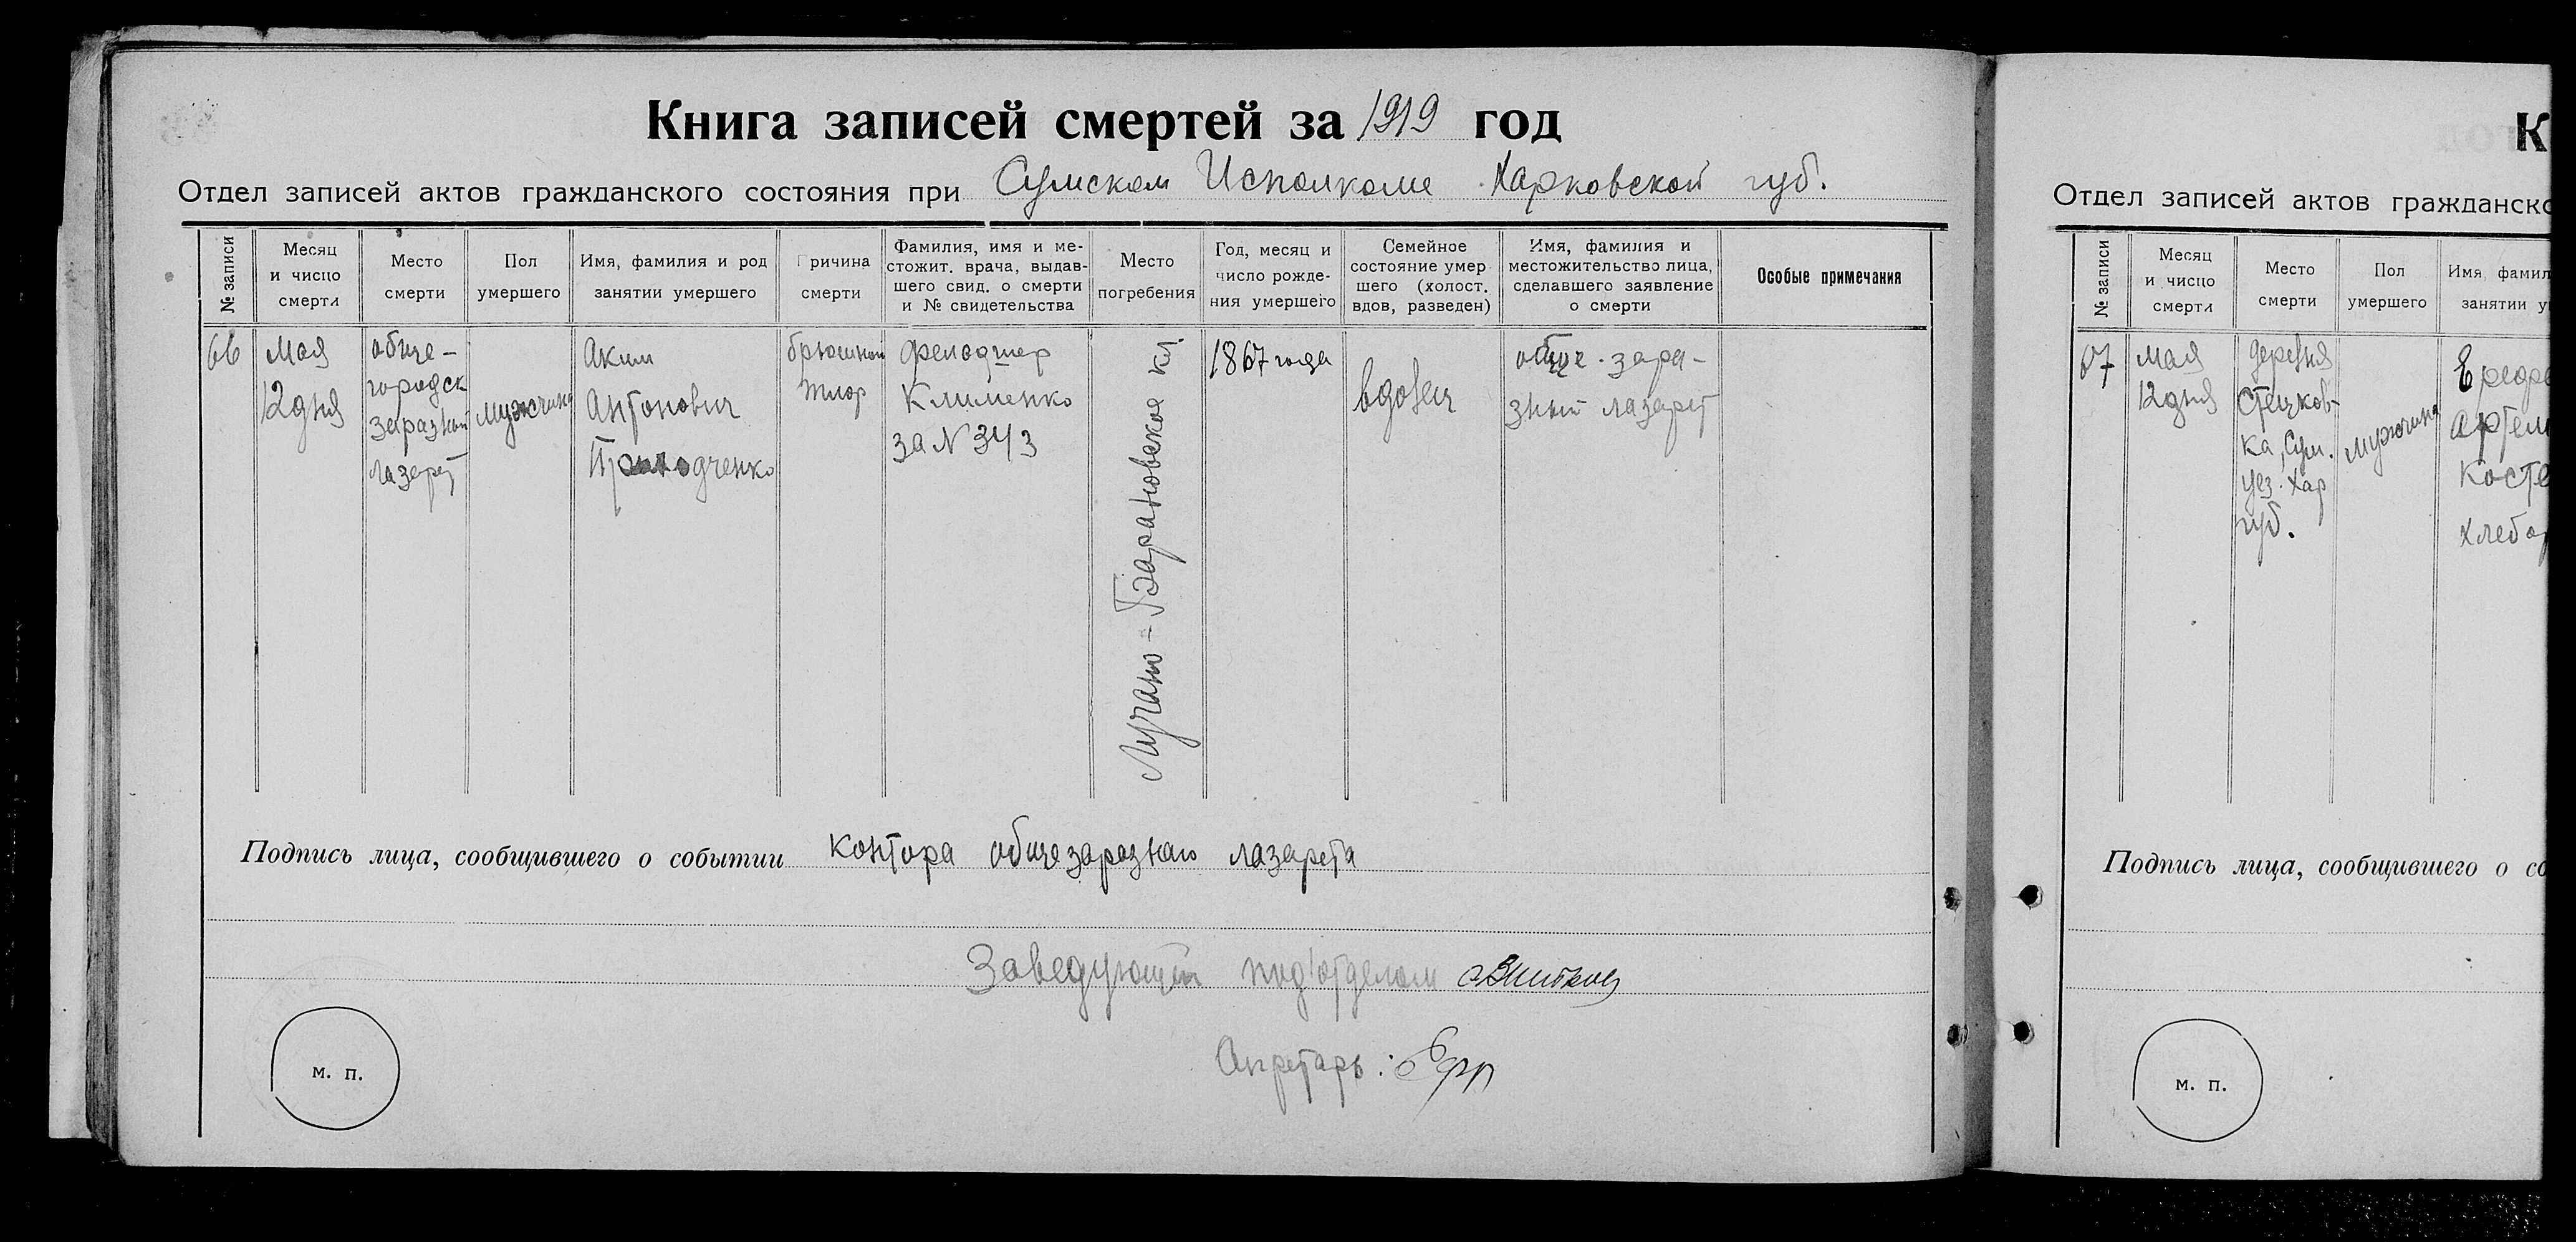 Книга записей смертей за 1919 год
Отдел записей актов гражданского состояния при Сумском Исполкоме Харковской губ.
№ записи
Месяц
и число
смерти
Место
смерти
Пол
умершего
Имя, фамилия и род
занятии умершего
Причина
смерти
Фамилия, имя и ме-
стожит. врача, выдав-
шего свид. о смерти
и № свидетельства
Место
погребения
Год, месяц и
число рожде-
ния умершего
Семейное
состояние умер
шего (холост.
вдов, разведен)
Имя, фамилия и
местожительство лица,
сделавшего заявление
о смерти
Особые примечания
66
Мая
12 дня
обще-
городск
заразный
лазарет
мужчина
Аким
Антонович
брюшной
тиф
Фельдшер
Клименко
за N 343
Лучано-Барановское кл.
1867 года
вдовец
обще-зара-
зный лазарет
Подпись лица, сообщившего о событии контора общезаразного лазарета
Заведующий под'отделом
Секретарь:
м. п.
К
Отдел записей актов гражданско
№ записи
Месяц
и число
смерти
Место
смерти
Пол
умершего
Имя, фамил
занятии у
67
мая
12 дня
деревня
Стецков-
ка, Сум.
уез. Хар
губ.
мужчина
Артем
Косте
хлебор
Подпись лица, сообщившего о со
м. п.